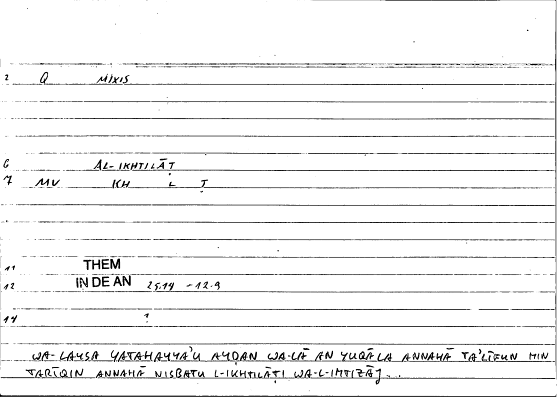 2 Q MIXIS
6 AL-IKHTILĀṬ
7 MV KH L Ṭ
11 THEM
12 IN DE AN 25.14 -12.9
14 1
WA-LAYSA YATAHAYYA'U AYḌAN WA-LĀ AN YUQĀLA ANNAHĀ TA'LĪFUN MIN
ṬARĪQIN ANNAHĀ NISBATU L-IKHTILĀṬI WA-L-IMTIZĀJ...